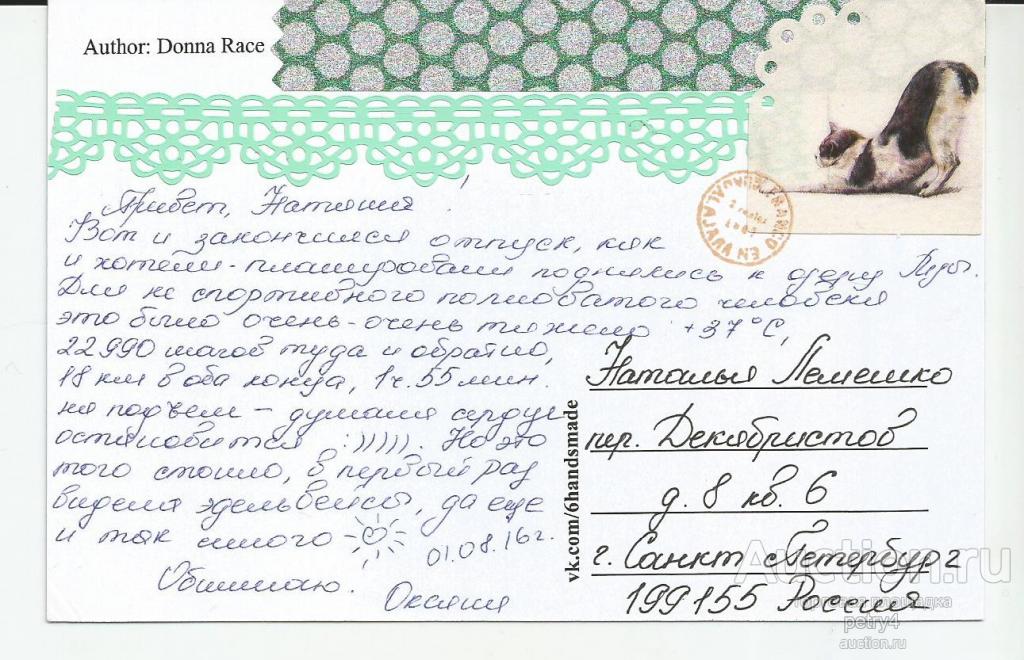 Author: Donna Race
Привет, Наташа!
Вот и закончился отпуск, как
и хотели-планировали поднялись к озеру
Для не спортивного полноватого человека
это было очень-очень тяжело +37°С,
22990 шагов туда и обратно,
18 км в оба конца, 1ч. 55 мин.
на подъем – думала сердце
остановится :))))). Но это
того стоило, в первый раз
видела эдельвейсы, да еще
и так много
01.08.16г.
Обнимаю.
Оксана
vk.com/6handsmade
Наталья Лемешко
пер. Декабристов
д. 8 кв. 6
г. Санкт Петербург
199155 Россия
Auction.ru
торговая площадка
petry4
auction.ru